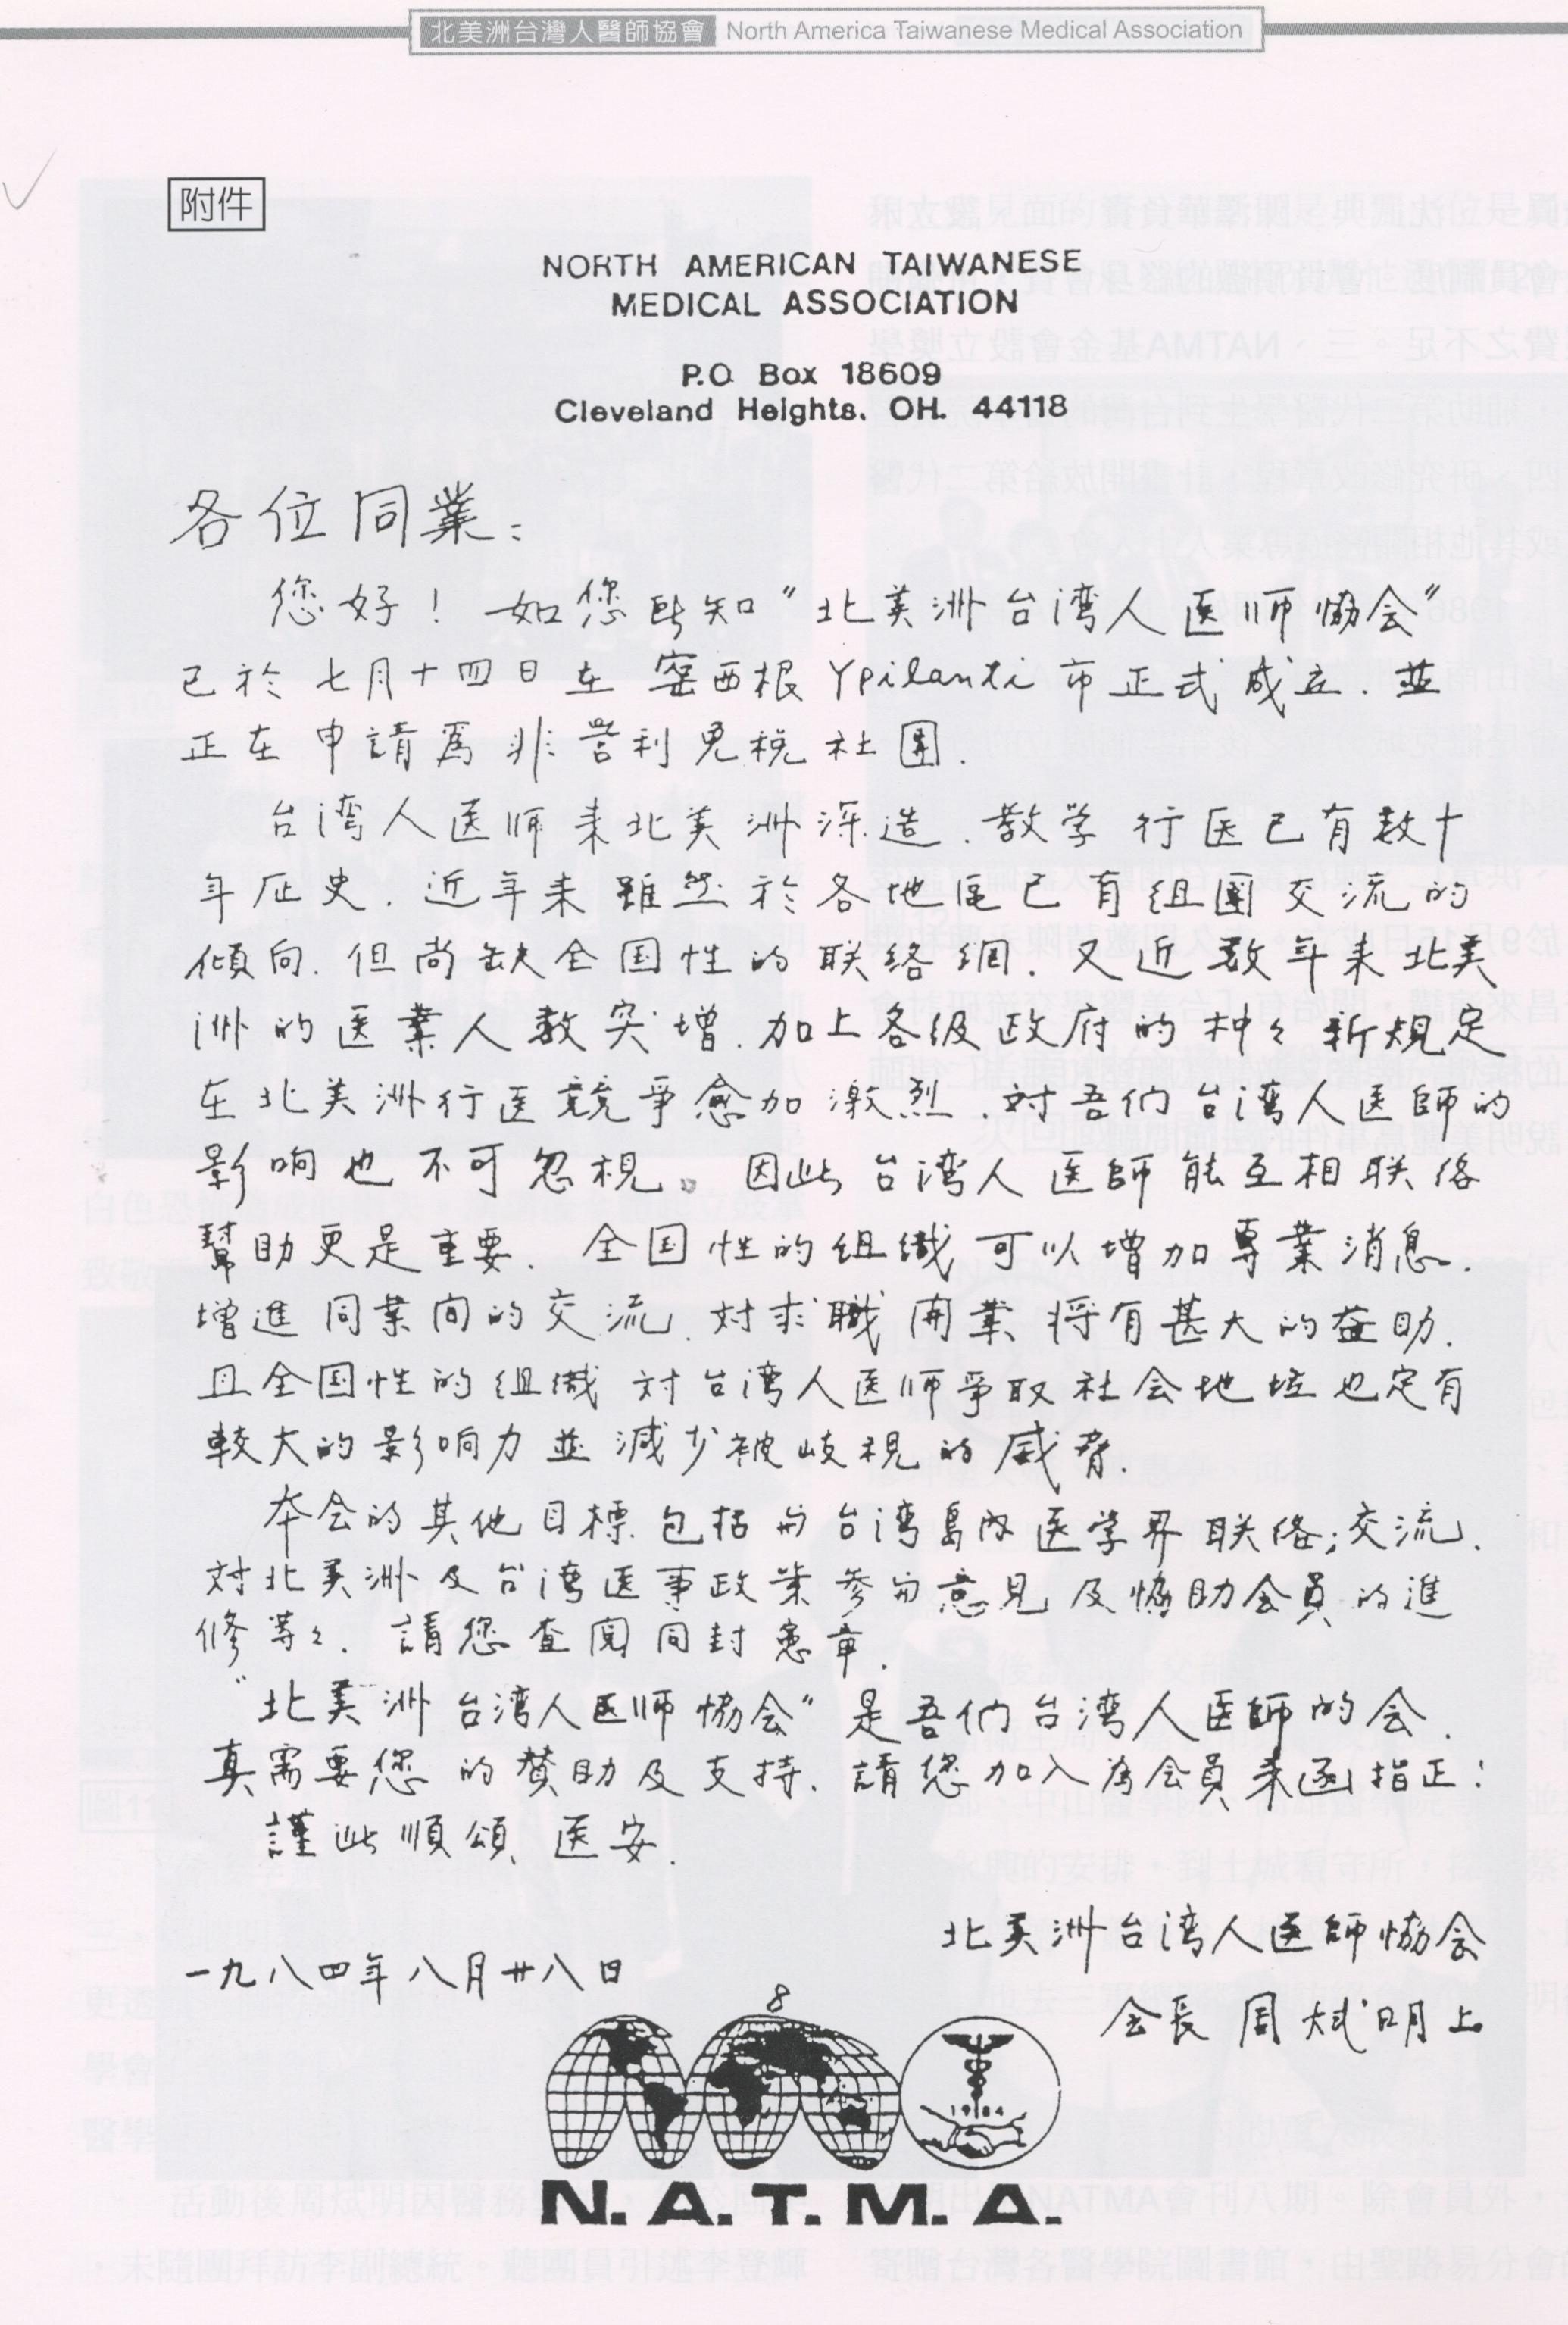 北美洲台灣人醫師協會 North America Taiwanese Medical Association
附件
NORTH AMERICAN TAIWANESE
MEDICAL ASSOCIATION
P.O. Box 18609
Cleveland Heights, OH. 44118
各位同業：
您好！如您所知"北美洲台湾人医师協会"
已於七月十四日在密西根Ypilanti市正式成立.並
正在申請爲非营利免税社团.
台湾人医师来北美洲深造.教学行医已有数十
年歴史.近年来雖然於各地区已有组團交流的
傾向.但尚缺全国性的联络網.又近数年来北美
洲的医業人数突增.加上各級政府的种々新規定
在北美洲行医競爭愈加激烈.対吾们台湾人医師的
影响也不可忽視。因此台湾人医師能互相联络
幫助更是重要.全国性的组織可以增加專業消息.
增進同業间的交流.対求職開業将有甚大的益助.
且全国性的组織対台湾人医师爭取社会地位也定有
較大的影响力並減少被歧視的威脅.
本会的其他目標包括与台湾島内医学界联络;交流.
対北美洲及台湾医事政策参与意見及協助会員的進
修等々.請您查阅同封憲章.
"北美洲台湾人医师協会"是吾们台湾人医師的会.
真需要您的赞助及支持.請您加入為会員来函指正:
謹此順頌医安.
北美洲台湾人医師協会
一九八四年八月廿八日
会長 周烒明上
8
1984
N.A.T.M.A.